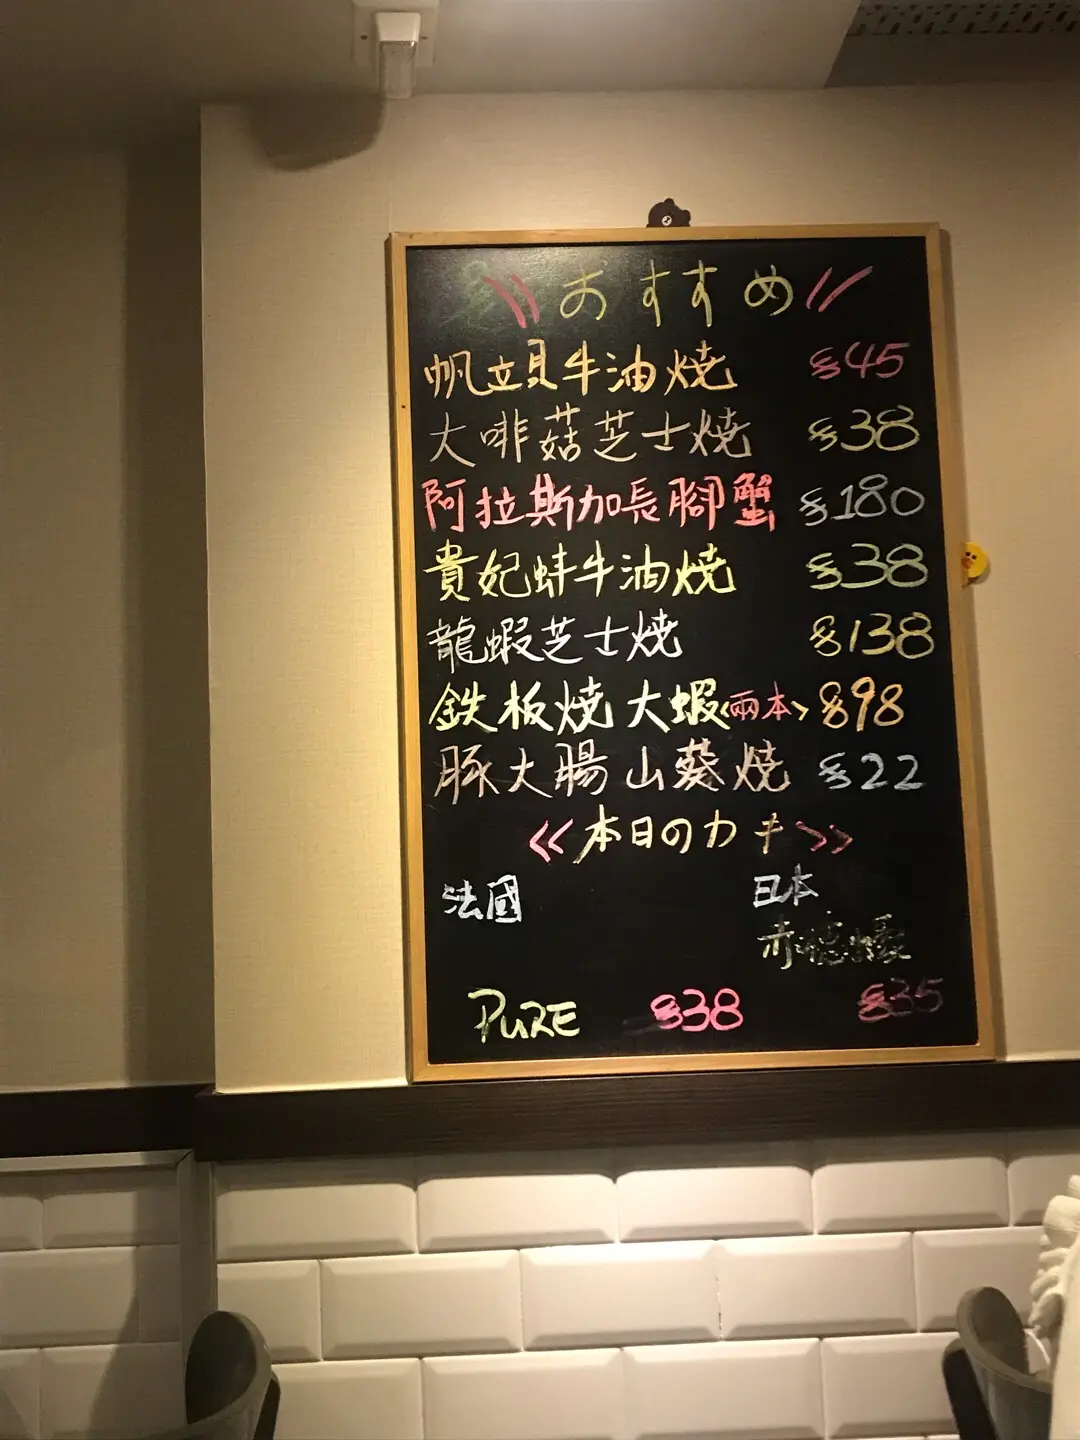 \\ おすすめ //
帆立貝牛油燒 $45
大啡菇芝士燒 $38
阿拉斯加長腳蟹 $180
貴妃蚌牛油燒 $38
龍蝦芝士燒 $138
鉄板燒大蝦<兩本> $98
豚大腸山葵燒 $22
<<本日のカキ>>
法國 日本
赤穗蠔
PURE $38 $35